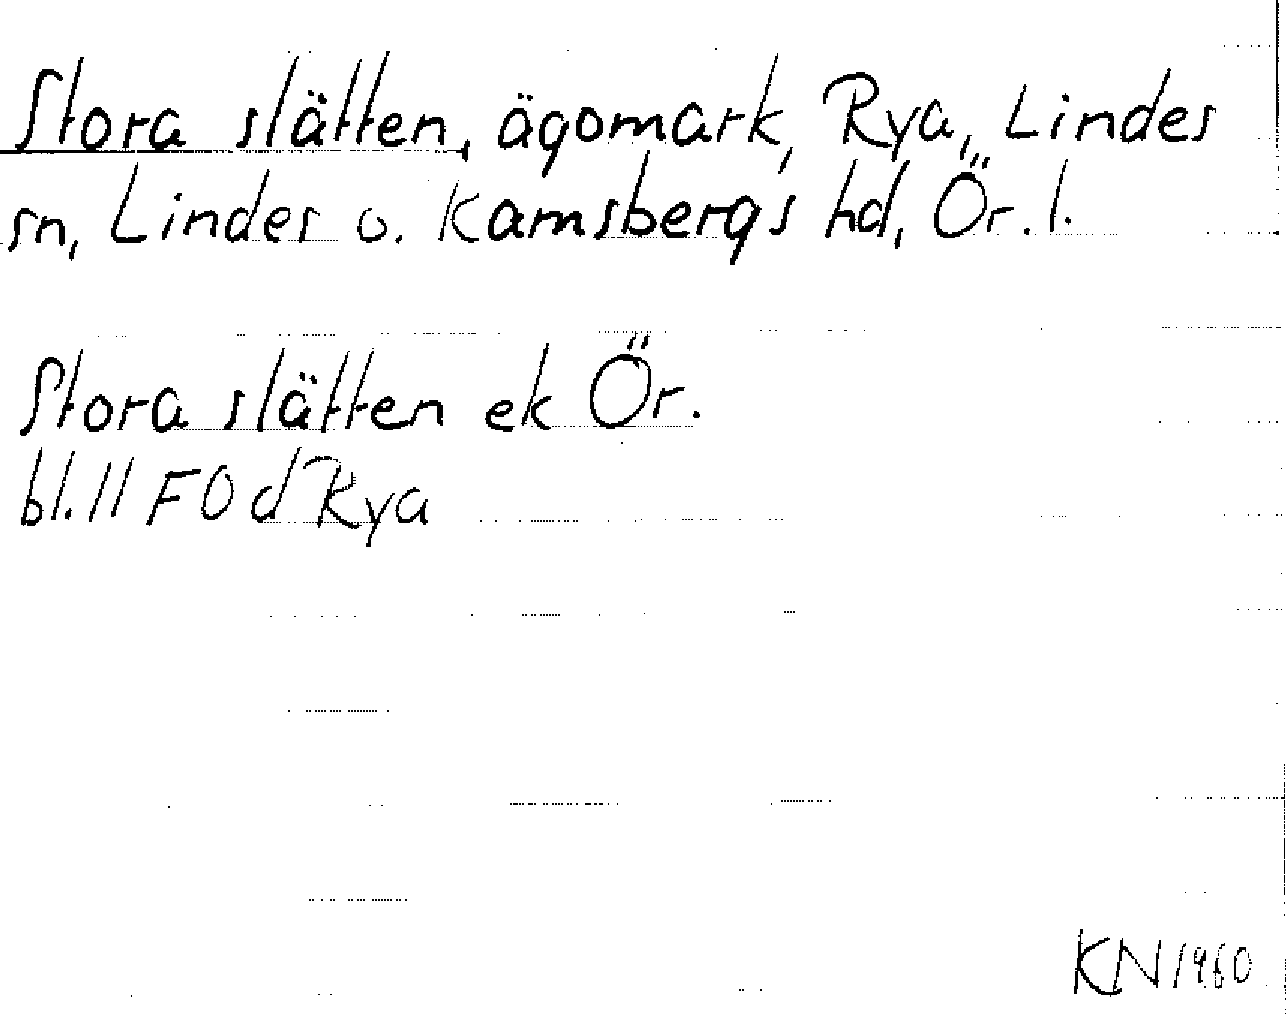 Stora slätten, ägomark, Rya, Lindes
sn, Lindes o. Ramsbergs hd, Ör. l.
Stora slätten ek Ör.
bl. 11 F0 d Rya
KN 1960